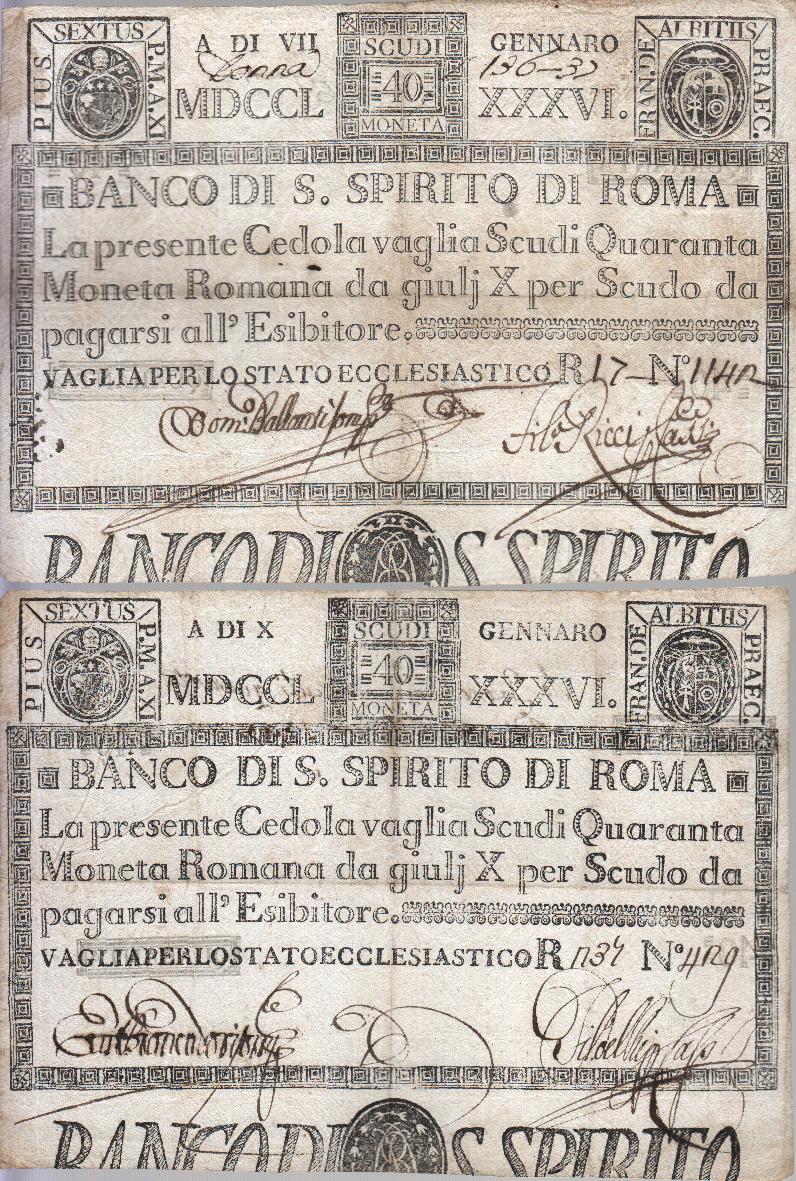 PIUS SEXTUS P.M.A.XI
A DI VII
SCUDI
40
MONETA
GENNARO
136-37
MDCCL XXXVI.
FRAN.DE ALBITIIS PRAEC.
BANCO DI S. SPIRITO DI ROMA
La presente Cedola vaglia Scudi Quaranta
Moneta Romana da giulj X per Scudo da
pagarsi all' Esibitore.
VAGLIA PER LO STATO ECCLESIASTICO R 17 N°
BANCO DI S. SPIRITO
PIUS SEXTUS P.M.A.XI
A DI X
SCUDI
40
MONETA
GENNARO
MDCCL XXXVI.
FRAN.DE ALBITIIS PRAEC.
BANCO DI S. SPIRITO DI ROMA
La presente Cedola vaglia Scudi Quaranta
Moneta Romana da giulj X per Scudo da
pagarsi all' Esibitore.
VAGLIA PER LO STATO ECCLESIASTICO R N°
BANCO DI S. SPIRITO